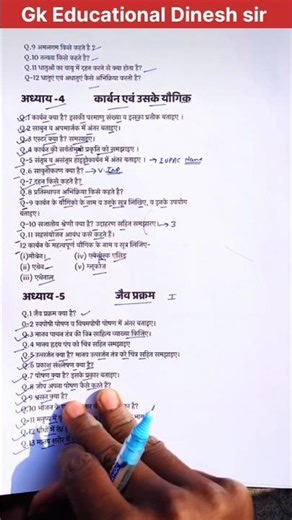 Gk Educational Dinesh sir
Q.9 अमलगम किसे कहते है ?
Q.10 तन्यता किसे कहते है ?
Q.11 धातुओं का वायु में दहन करने से क्या होता है?
Q-12 धातुएं एवं अधातुएं कैसे अभिक्रिया करती है?
अध्याय -4 कार्बन एवं उसके यौगिक
Q.1 कार्बन क्या है? इसकी परमाणु संख्या व इसका प्रतीक बताइए ।
Q.2 साबुन व अपमार्जक में अंतर बताइए।
Q.3 एस्टर क्या है? समझाइए।
Q.4 कार्बन की सर्वतोमुखी प्रकृति को समझाइए।
Q-5 संतृप्त व असंतृप्त हाइड्रोकार्बन में अंतर बताइए । → IUPAC Name
Q.6 साबुनीकरण क्या है?
Q-7 दहन किसे कहते है?
Q.8 प्रतिस्थापन अभिक्रिया किसे कहते है?
Q-9 कार्बन के यौगिकों के नाम व उनके सूत्र लिखिए, व इनके उपयोग
बताइए।
Q-10 सजातीय श्रेणी क्या है? उदाहरण सहित समझाए → 3
Q.11 सहसंयोजन आबंध कसे कहते है।
12 कार्बन के महत्वपूर्ण यौगिक के नाम व सूत्र लिखिए-
(i)मीथेन। (iv) एथेनोइक एसिड
(ii) एथेन (v) ग्लूकोज
(iii) एथेनाल
अध्याय -5 जैव प्रक्रम I
Q.1 जैव प्रक्रम क्या है?
Q-2 स्वपोषी पोषण व विषमपोषी पोषण में अंतर बताइए।
Q-3 मानव पाचन तंत्र की चित्र साहित्य व्याख्या किजिए।
Q-4 मानव हृदय पंप को चित्र सहित समझाइए
Q.5 उत्सर्जन क्या है? मानव उत्सर्जन तंत्र को चित्र सहित समझाइए
Q.6 प्रकाश संश्लेषण क्या है?
Q.7 पोषण क्या है? इसके प्रकार बताइए।
Q.8 जीव अपना पोषण कैसे करते है?
Q-9 श्वसन क्या है?
Q.10 भोजन के
Q-11 मनुष्य में